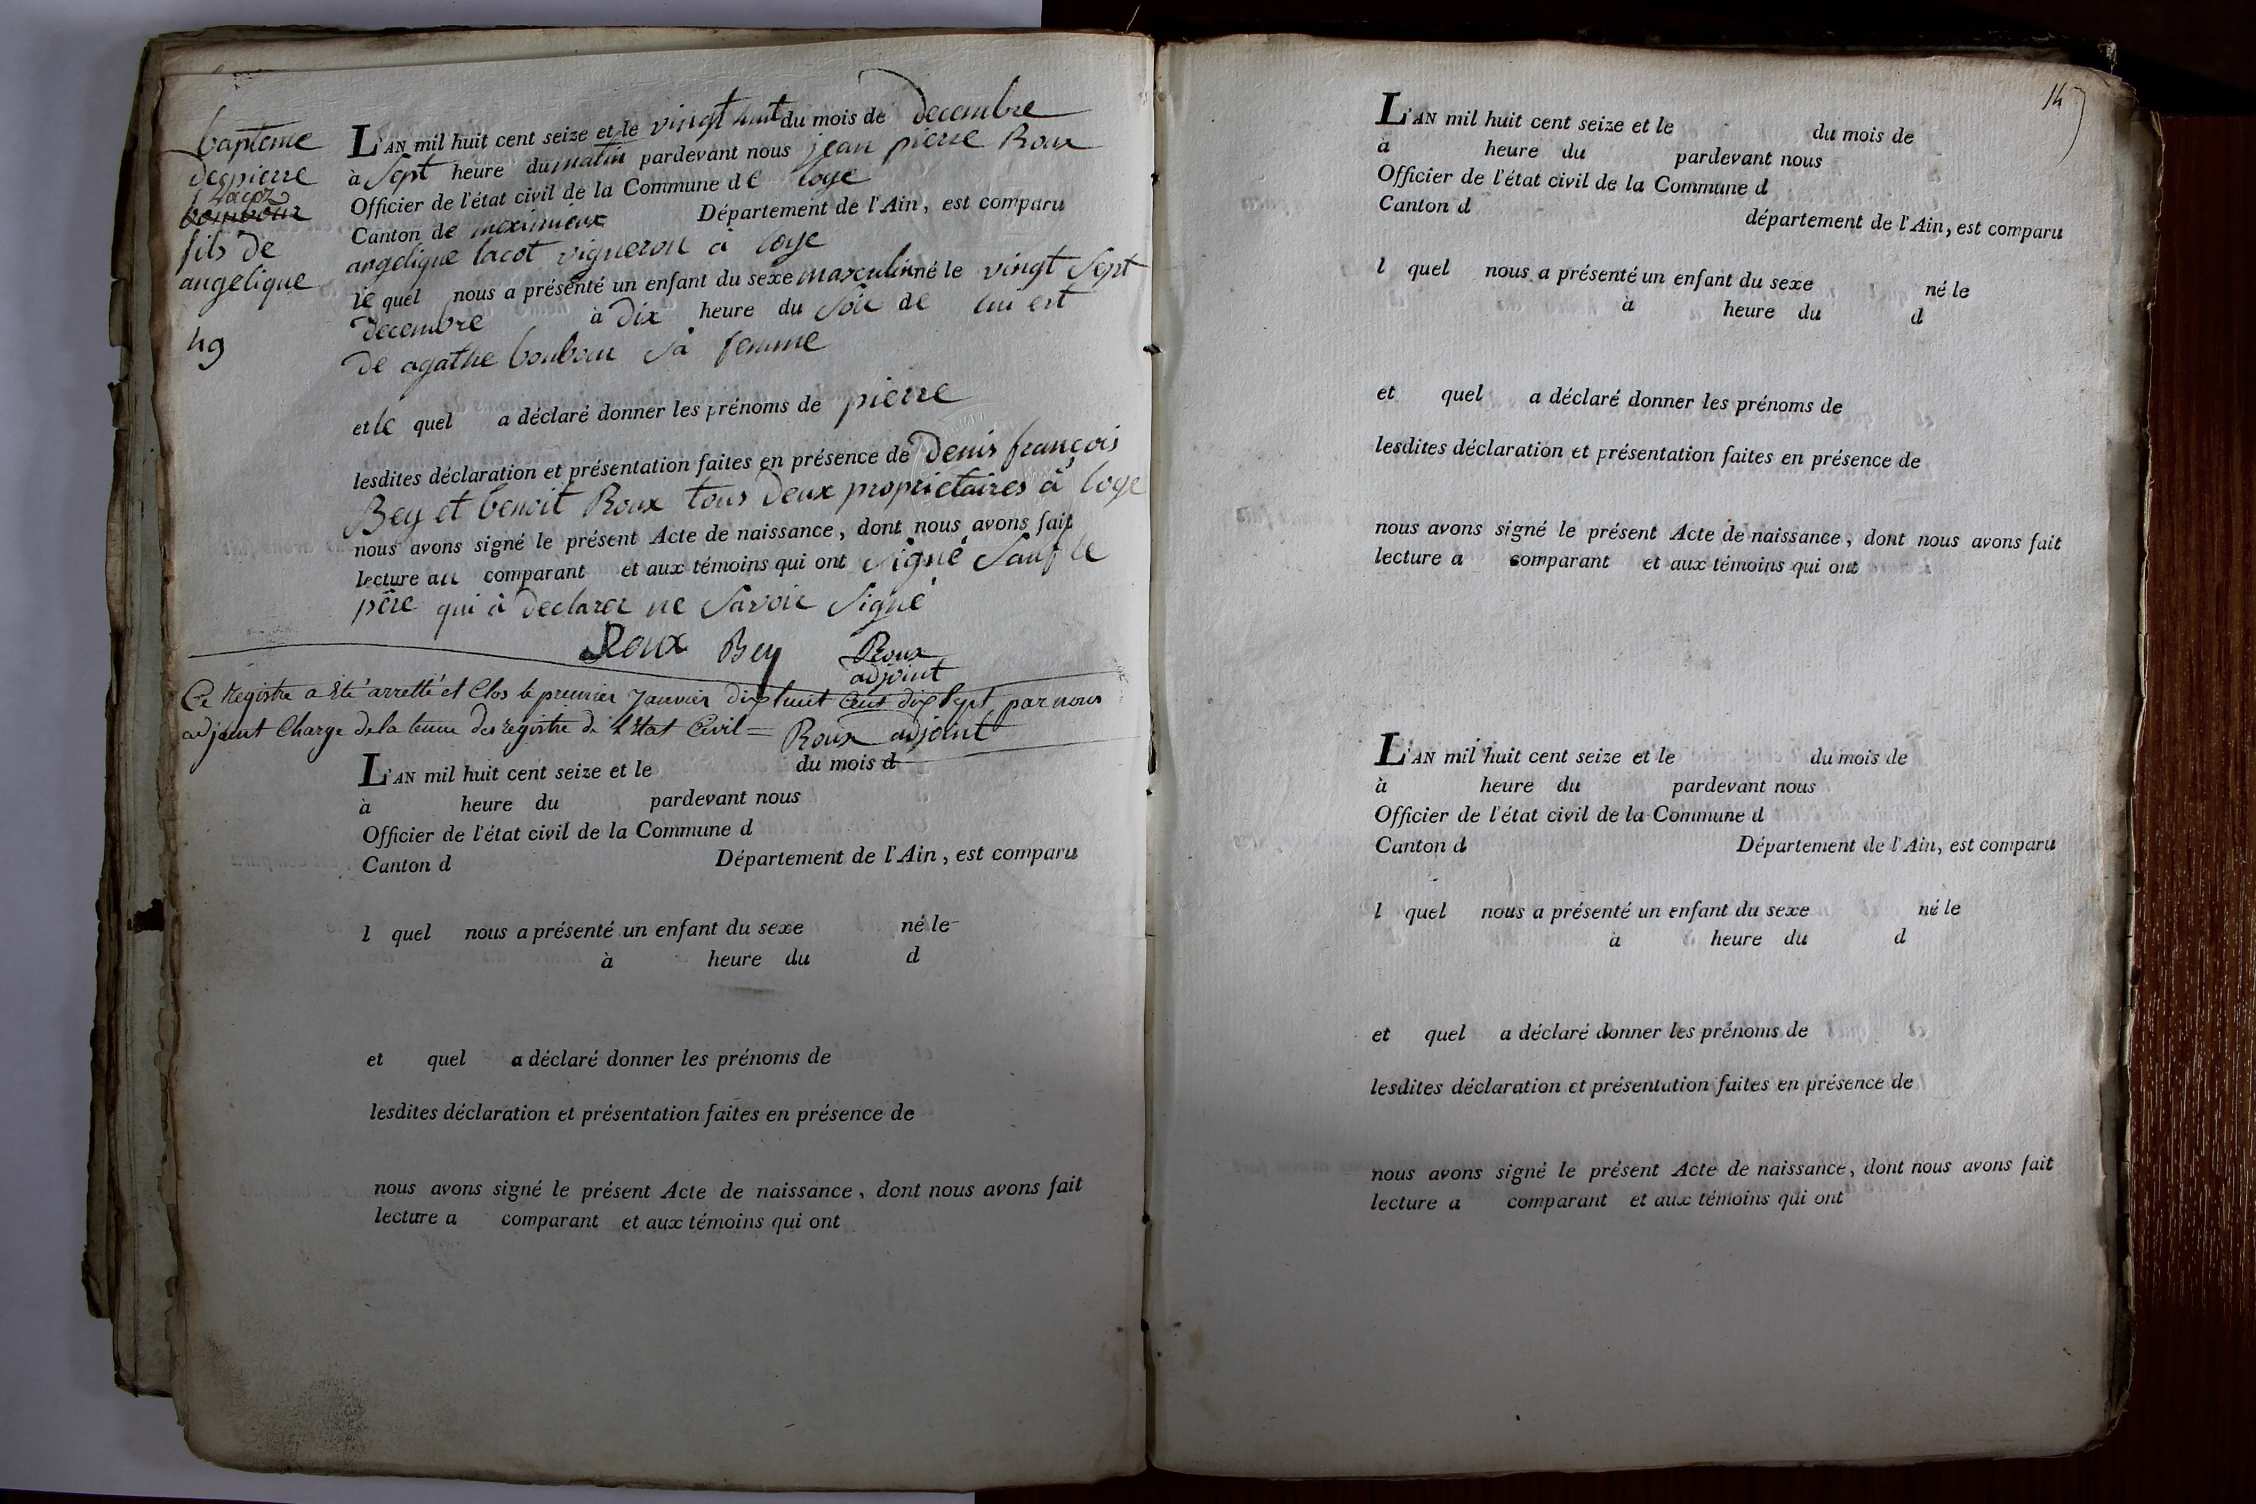 bapteme
de pierre
Lacot
bombour
fils de
angelique
49
L'AN mil huit cent seize et le vingt huit du mois de decembre
à Sept heure du matin pardevant nous jean pierre Roux
Officier de l'état civil de la Commune de loye
Canton de meximieux Département de l'Ain, est comparu
angelique lacot vigneron à loye
le quel nous a présenté un enfant du sexe masculin né le vingt Sept
decembre à dix heure du Soir de lui et
de agathe bonbour Sa femme
et le quel a déclaré donner les prénoms de pierre
lesdites déclaration et présentation faites en présence de Denis françois
Bey et benoit Roux tous deux proprietaires à loye
nous avons signé le présent Acte de naissance, dont nous avons fait
lecture au comparant et aux témoins qui ont Signé Sauf le
père qui à declarer ne Savoir Signé
Roux Bey Roux
adjoint
Ce Registre a été arretté et Clos le premier Janvier dix huit Cent dix Sept par nous
adjoint Charge de la tenue des registre de l'Etat Civil = Roux adjoint
L'AN mil huit cent seize et le du mois d
à heure du pardevant nous
Officier de l'état civil de la Commune d
Canton d Département de l'Ain, est comparu
l quel nous a présenté un enfant du sexe né le
à heure du d
et quel a déclaré donner les prénoms de
lesdites déclaration et présentation faites en présence de
nous avons signé le présent Acte de naissance, dont nous avons fait
lecture a comparant et aux témoins qui ont
14
L'AN mil huit cent seize et le du mois de
à heure du pardevant nous
Officier de l'état civil de la Commune d
Canton d département de l'Ain, est comparu
l quel nous a présenté un enfant du sexe né le
à heure du d
et quel a déclaré donner les prénoms de
lesdites déclaration et présentation faites en présence de
nous avons signé le présent Acte de naissance, dont nous avons fait
lecture a comparant et aux témoins qui ont
L'AN mil huit cent seize et le du mois de
à heure du pardevant nous
Officier de l'état civil de la Commune d
Canton d Département de l'Ain, est comparu
l quel nous a présenté un enfant du sexe né le
à heure du d
et quel a déclaré donner les prénoms de
lesdites déclaration et présentation faites en présence de
nous avons signé le présent Acte de naissance, dont nous avons fait
lecture a comparant et aux témoins qui ont